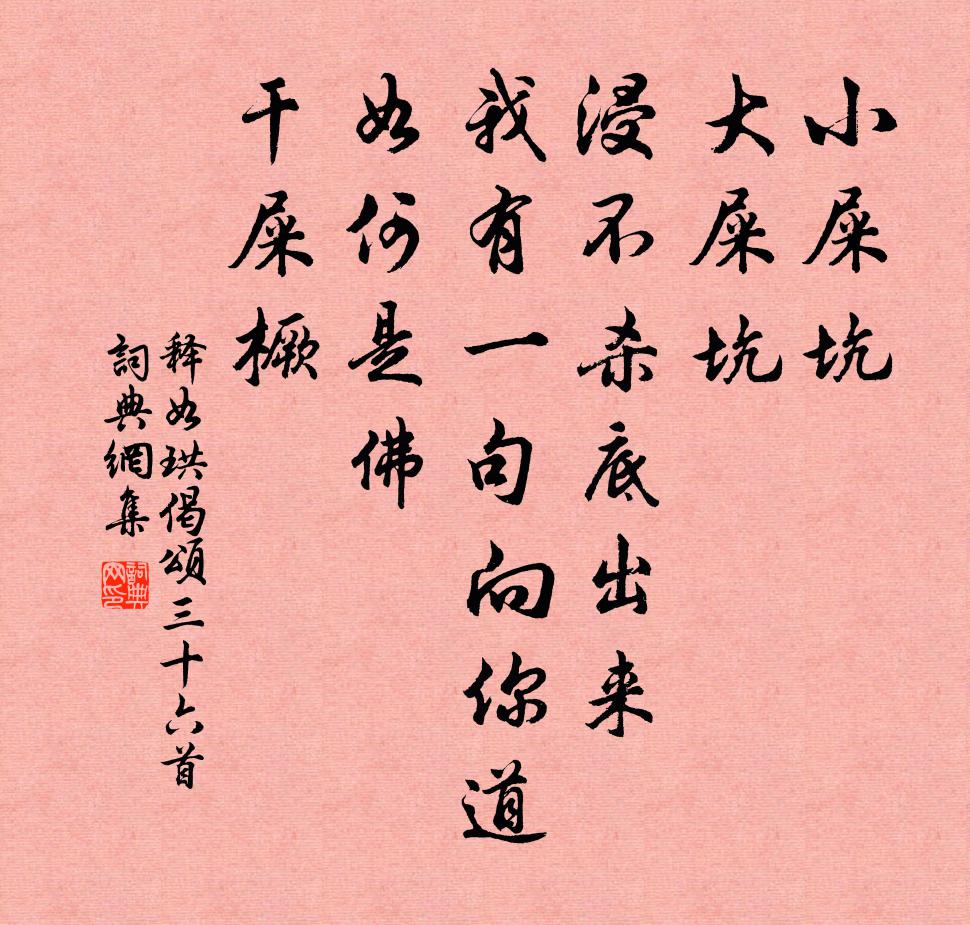 小屎坑
大屎坑
浸不杀底出来
我有一句向你道
如何是佛
干屎橛
释如珙偈頌三十六首
詞典網集
詞典网印